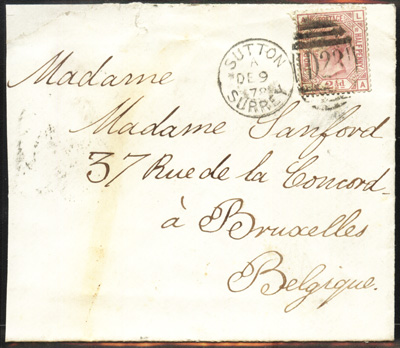 SUTTON
A
DE 9
78
SURREY
POSTAGE
L
A
2½d
Madame
Madame Sanford
37 Rue de la Concord-
à Bruxelles
Belgique.